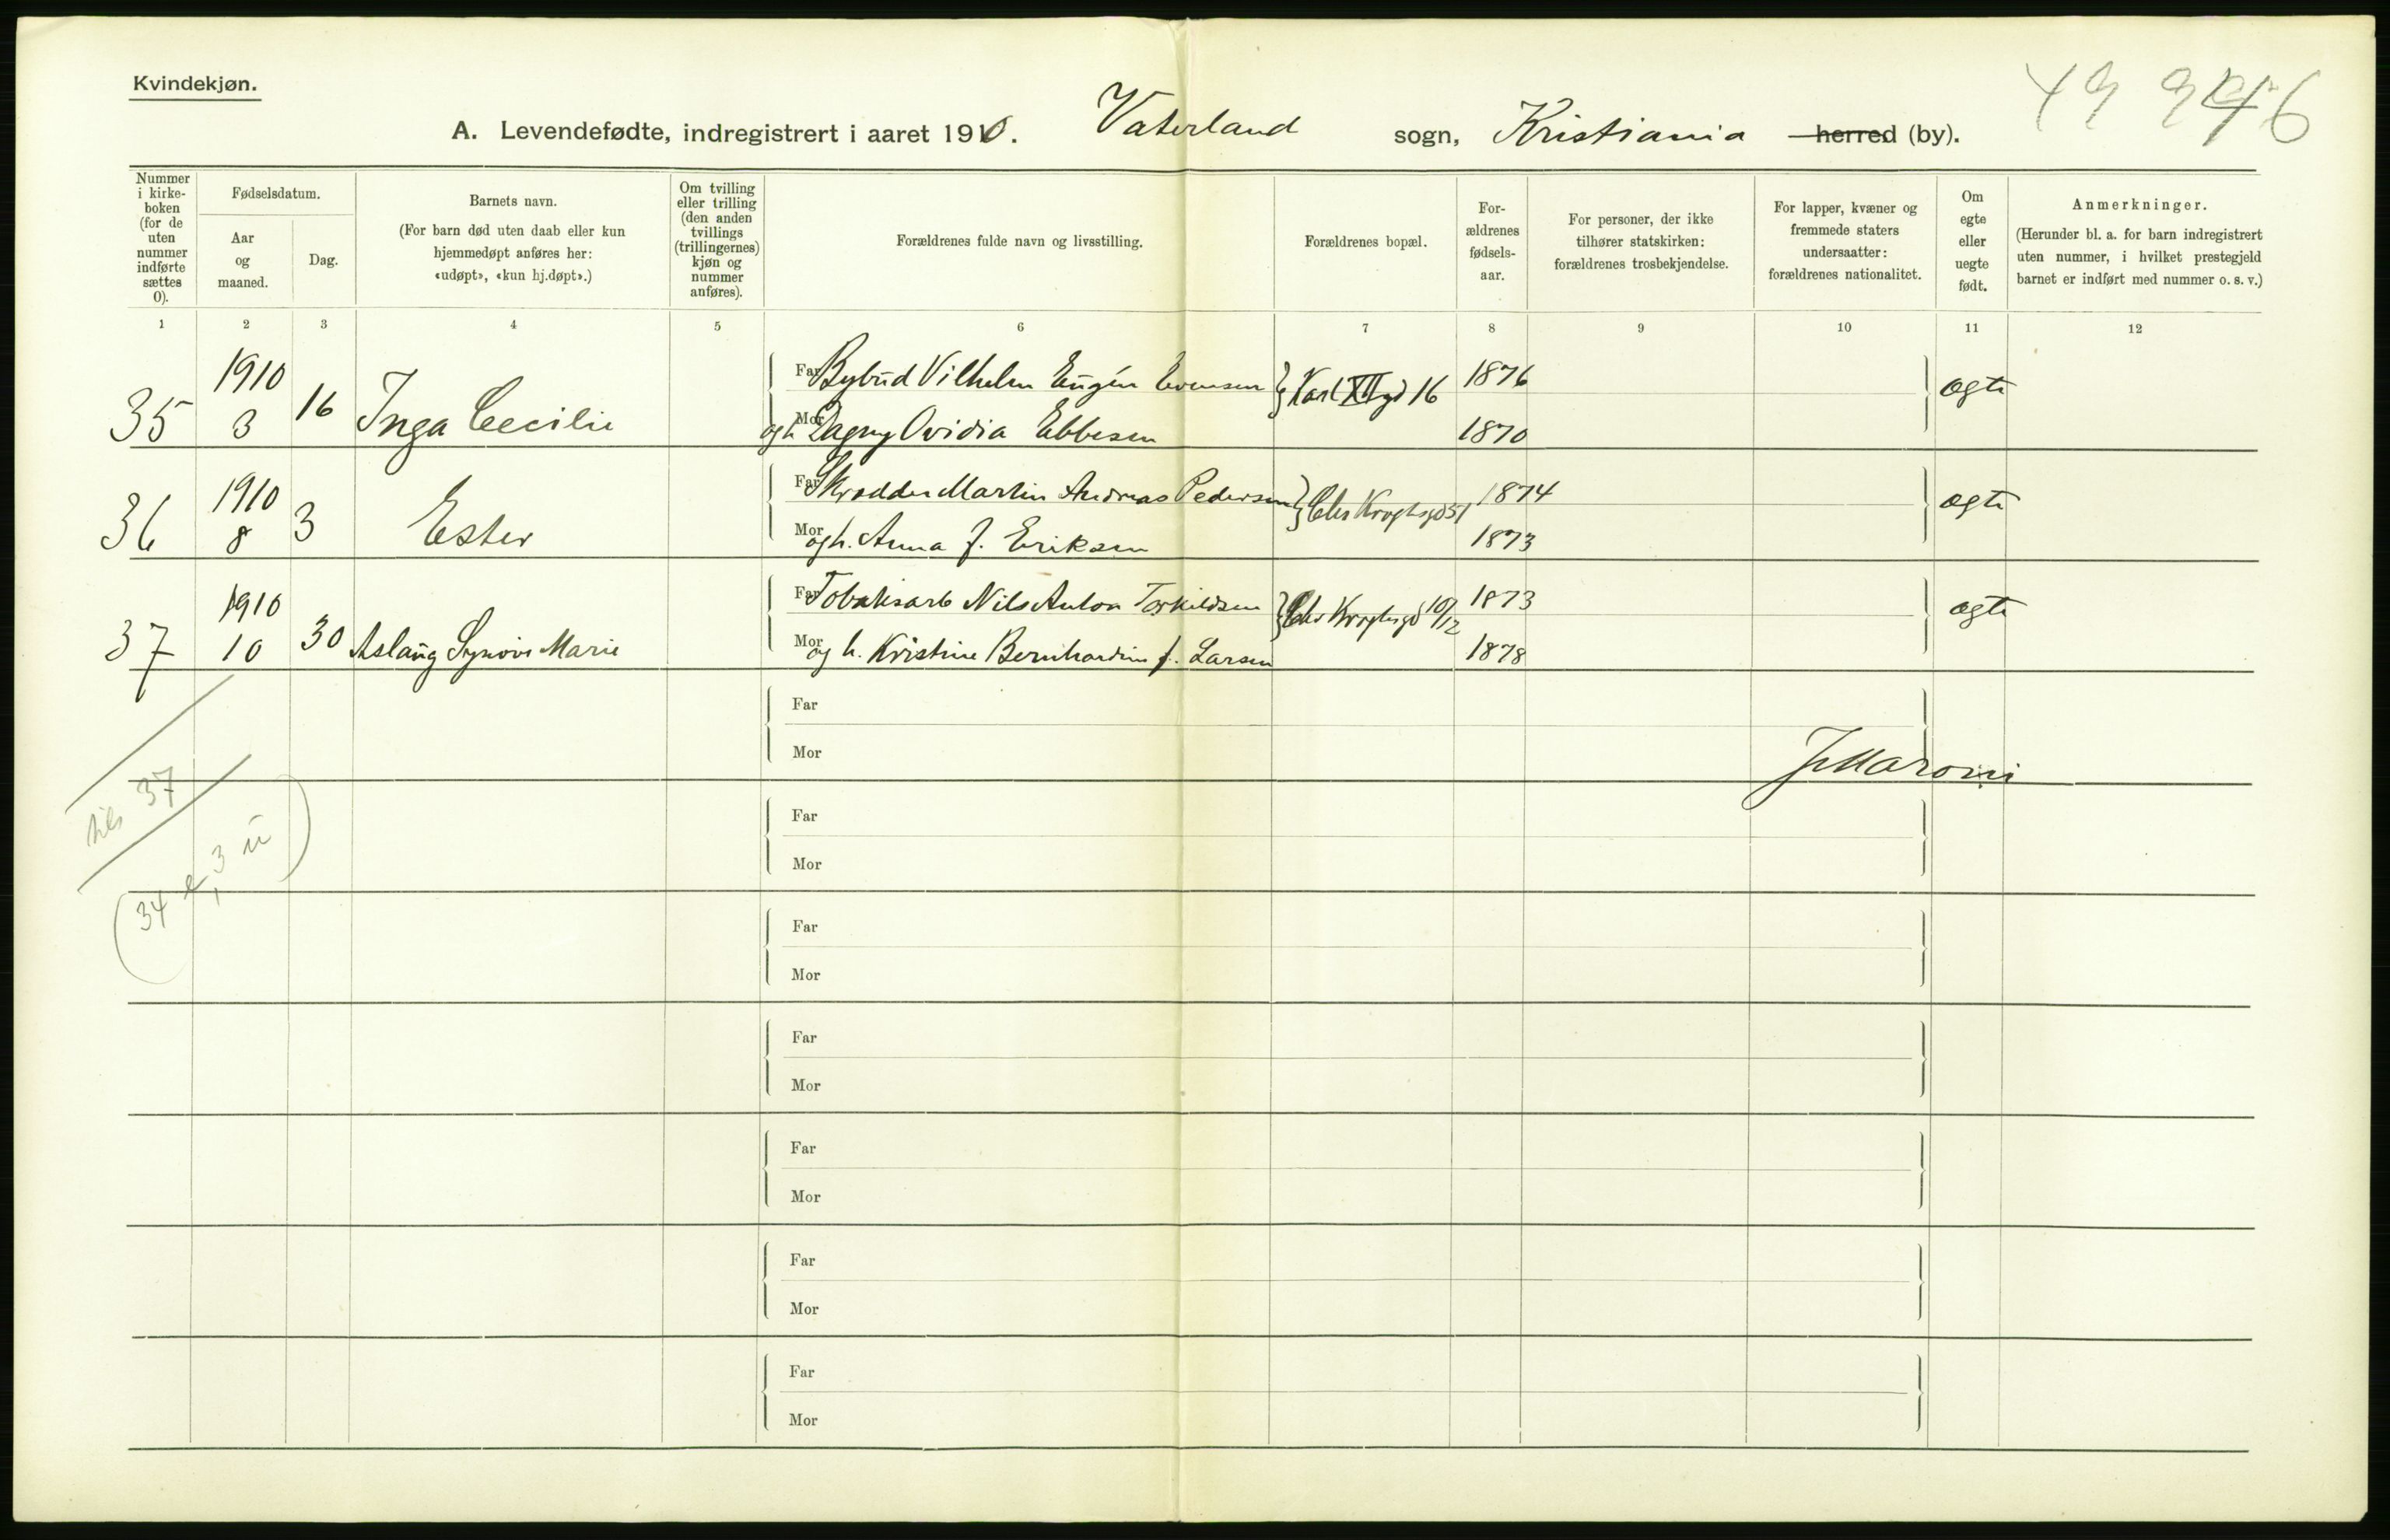 Kvindekjøn.
A. Levendefødte, indregistrert i aaret 1910. Vaterland sogn, Kristiania herred (by).
Nummer i kirke-boken (for de uten nummer indførte sættes 0).
Fødselsdatum.
Aar og maaned.
Dag.
Barnets navn.
(For barn død uten daab eller kun hjemmedøpt anføres her: «udøpt», «kun hj.døpt».)
Om tvilling eller trilling (den anden tvillings (trillingernes) kjøn og nummer anføres).
Forældrenes fulde navn og livsstilling.
Forældrenes bopæl.
For-ældrenes fødsels-aar.
For personer, der ikke tilhører statskirken: forældrenes trosbekjendelse.
For lapper, kvæner og fremmede staters undersaatter: forældrenes nationalitet.
Om egte eller uegte født.
Anmerkninger.
(Herunder bl. a. for barn indregistrert uten nummer, i hvilket prestegjeld barnet er indført med nummer o. s. v.)
1 2 3 4 5 6 7 8 9 10 11 12
35 1910 3 16 Inga Cecilie
Far Bybud Vilhelm Eugén Evensen Karl XII gd 16 1876 ægte
Mor og h. Dagny Ovidia Ebbesen 1870
36 1910 8 3 Ester
Far Skrædder Martin Andreas Pedersen Chr Kroghsgd 51 1874 ægte
Mor og h. Anna f. Eriksen 1873
37 1910 10 30 Aslaug Synøve Marie
Far Tobaksarb Nils Anton Torkildsen Chr Kroghsgd 10/12 1873 ægte
Mor og h. Kristine Bernhardine f. Larsen 1878
Far
Mor
JMaroni
tils 37
(34 e, 3 u)
Far
Mor
Far
Mor
Far
Mor
Far
Mor
Far
Mor
Far
Mor